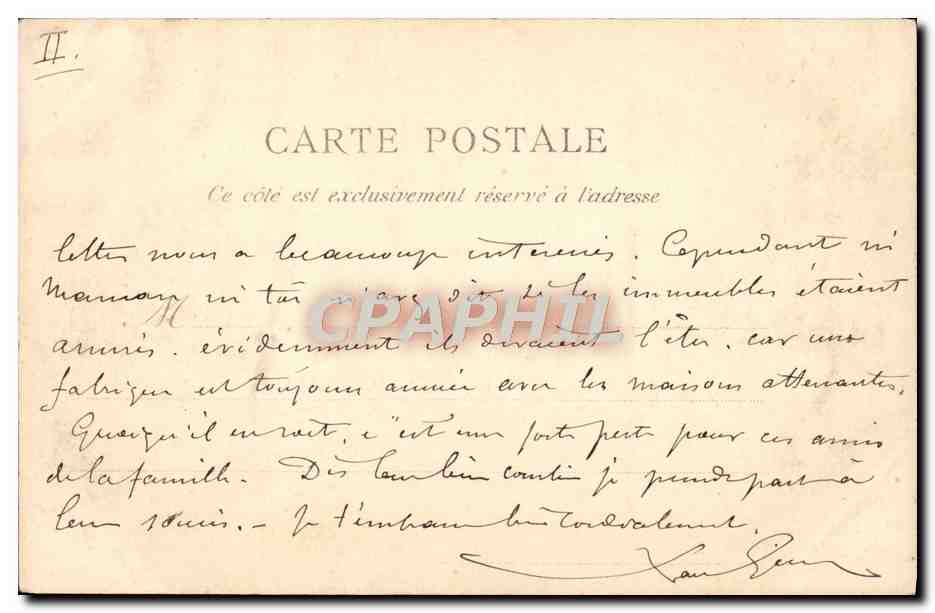 II.
CARTE POSTALE
Ce côté est exclusivement réservé à l'adresse
lettre nous a beaucoup intéressés. Cependant ni
Maman ni toi n'avez dit si les immeubles étaient
CPAPHIL
M
assurés. évidemment ils devaient l'être, car une
fabrique est toujours assurée avec les maisons attenantes.
Quoiqu'il en soit, c'est une forte perte pour ces amis
de la famille. Dis leur bien combien je prends part à
leurs soucis. — Je t'embrasse bien cordialement.